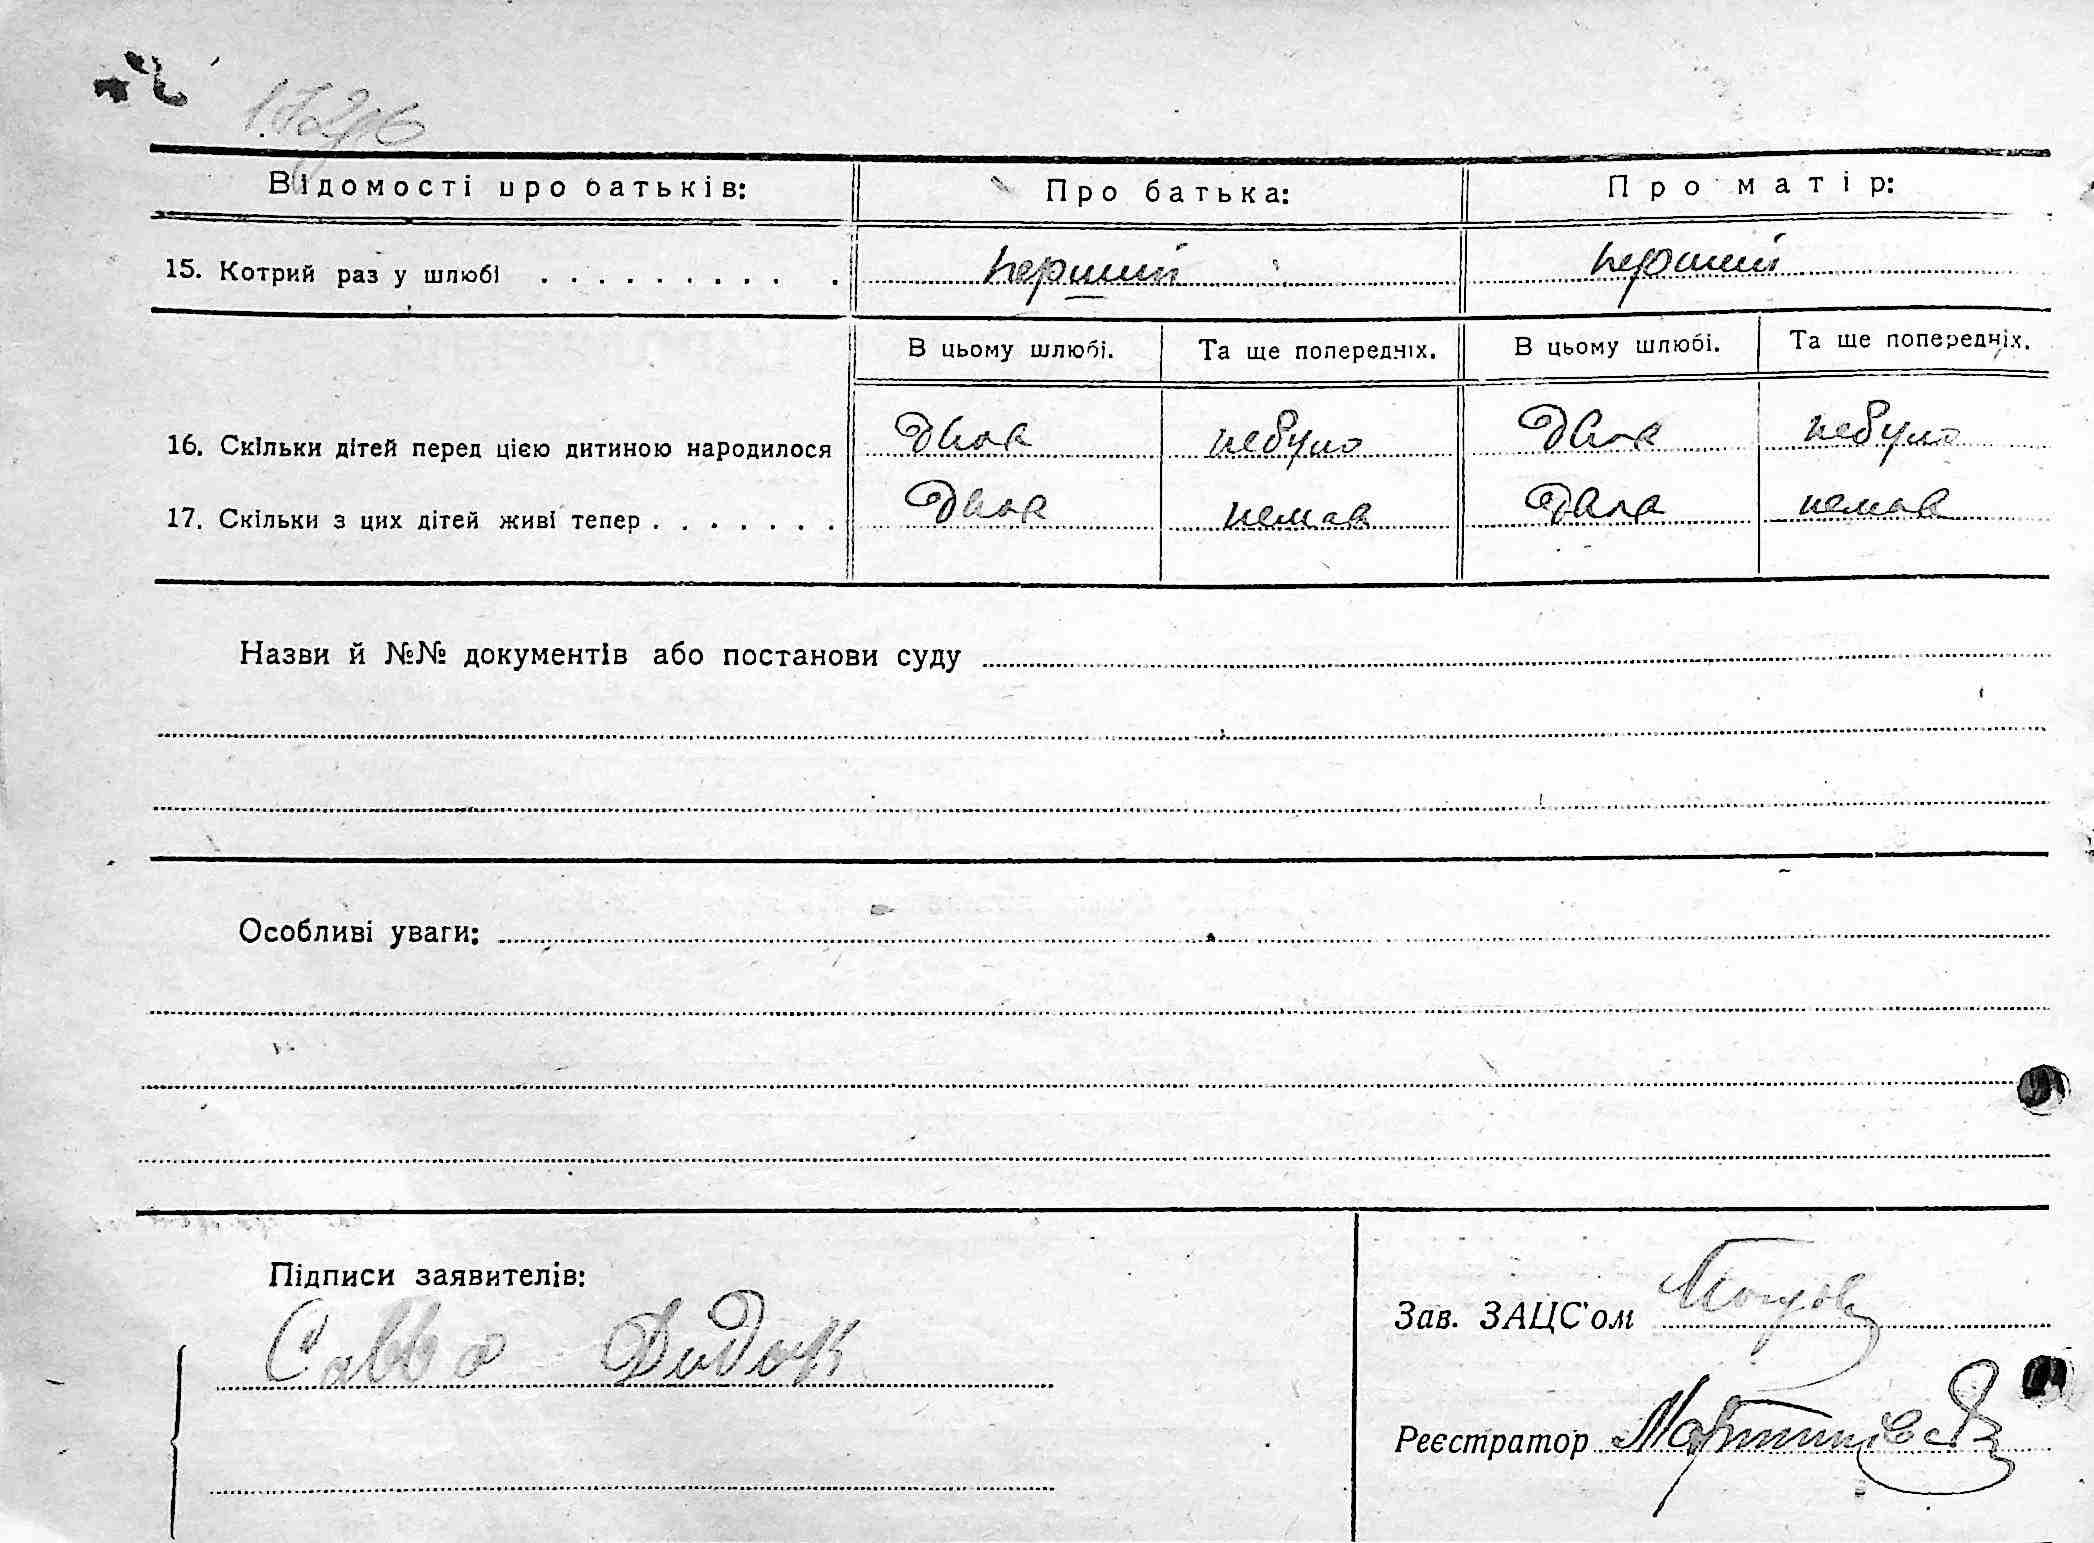 Відомості про батьків: Про батька: Про матір:
15. Котрий раз у шлюбі . . . . . . . . . . перший перший
В цьому шлюбі. Та ще попередніх. В цьому шлюбі. Та ще попередніх.
16. Скільки дітей перед цією дитиною народилося двоє небуло двоє небуло
17. Скільки з цих дітей живі тепер . . . . . . . двоє немає двоє немає
Назви й №№ документів або постанови суду
Особливі уваги:
Підписи заявителів:
Савва Дидок
Зав. ЗАЦС'ом
Реєстратор